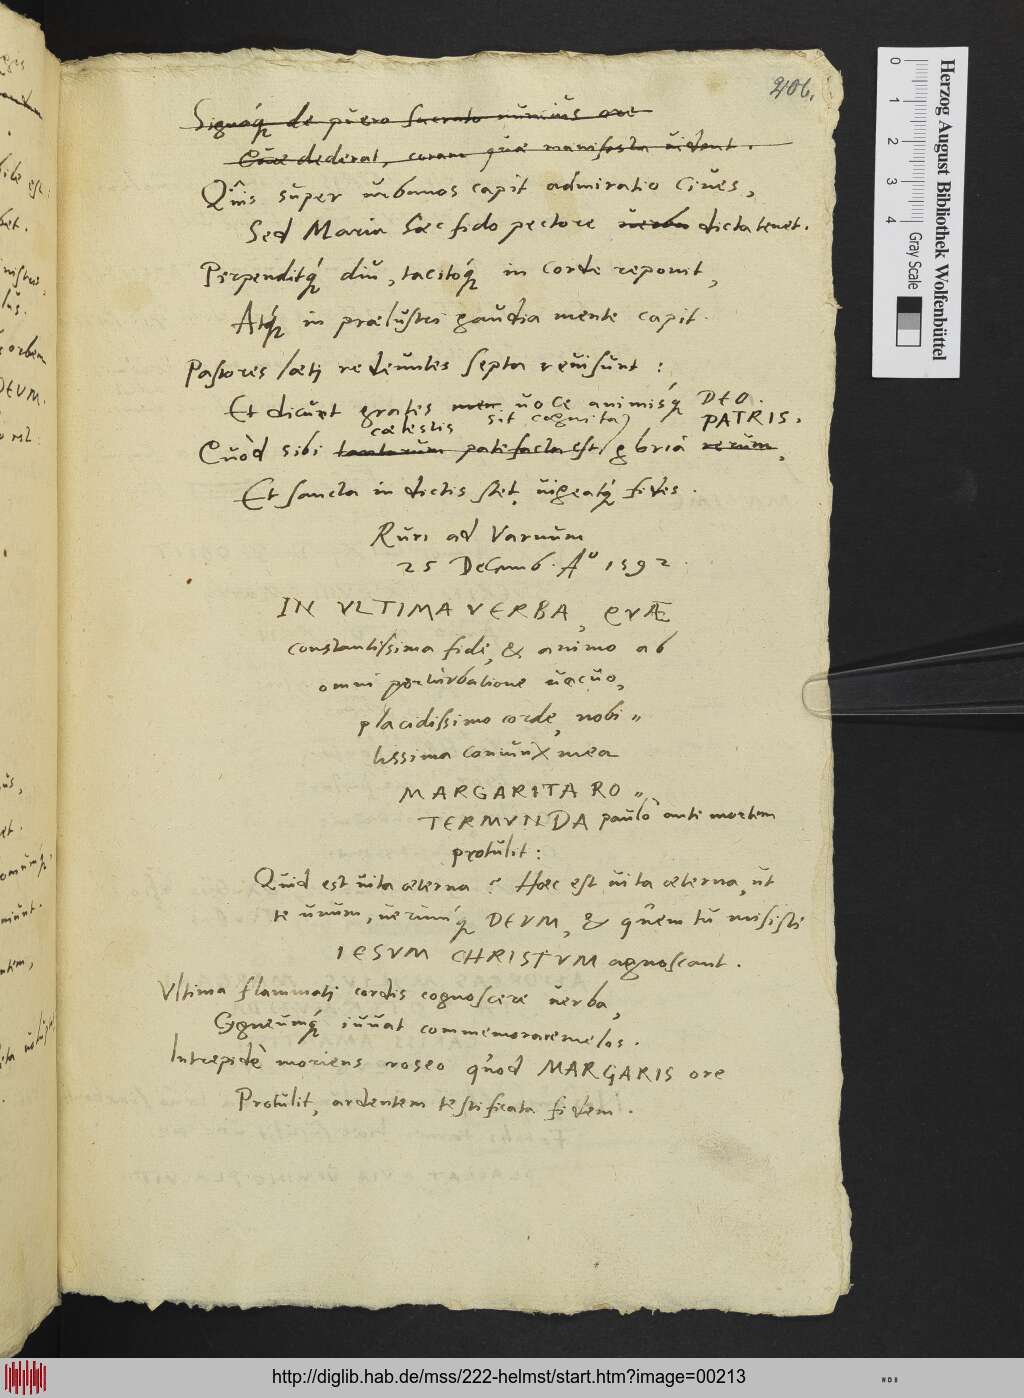 206.
Signáq de puero sacrato nuncius ore
Quae dederat, coram quae manifesta uident.
Quis super urbanos capit admiratio ciues,
Sed Maria haec fido pectore uerba dicta tenet.
Perpenditq́ diu, tacitóq in corde reponit,
Atq́ in praelustri gaudia mente capit.
Pastores laeti redeuntes septa reuisunt:
Et dicunt grates uoce animisq́ DEO.
caelestis sit cognita PATRIS.
Quòd sibi tantarum patefacta est gloria rerum,
Et sancta in dictis stet, uigeatq́ fides.
Ruri ad Varnum
25 Decemb. Aº 1592.
IN VLTIMA VERBA, QVAE
constantissima fide, & animo ab
omni perturbatione uacuo,
placidissimo corde, nobi„
lissima coniunx mea
MARGARITA RO„
TERMVNDA paulò ante mortem
protulit:
Quid est uita aeterna? Haec est uita aeterna, ut
te unum, uerumq́ DEVM, & quem tu misisti
IESVM CHRISTVM agnoscant.
Vltima flammati cordis cognoscere uerba,
Cygneumq́ iuuat commemorare melos.
Intrepidè moriens roseo quod MARGARIS ore
Protulit, ardentem testificata fidem.
Herzog August Bibliothek Wolfenbüttel
0 1 2 3 4
Gray Scale
http://diglib.hab.de/mss/222-helmst/start.htm?image=00213